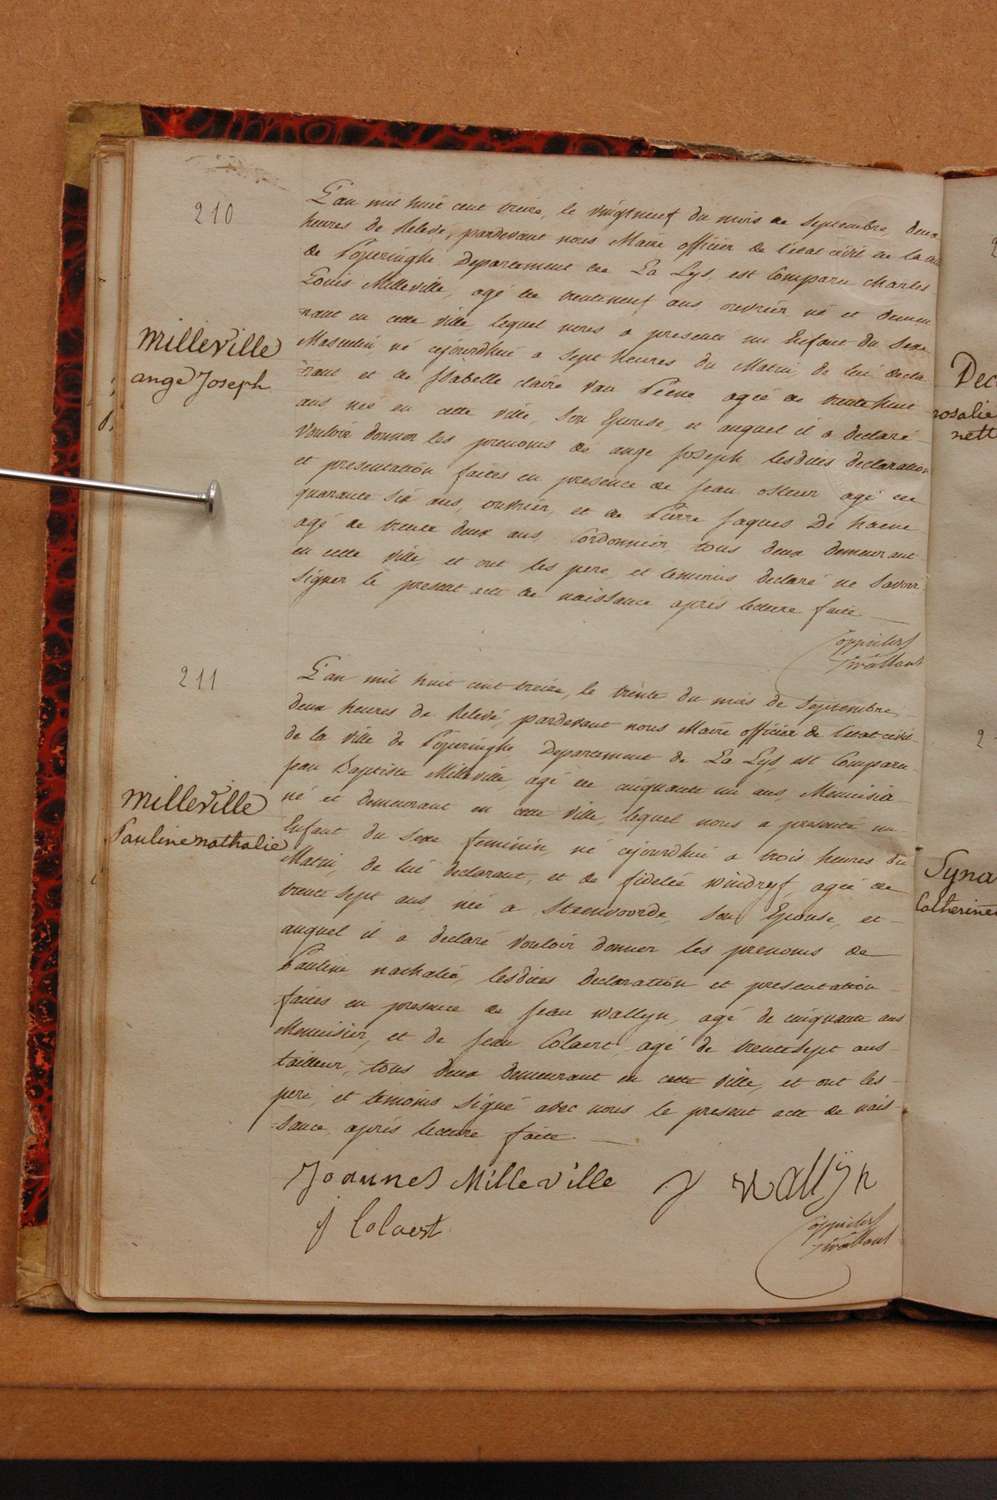 210
L'an mil huit cent treize, le vingtneuf du mois de Septembre, deux
heures de Relevé, pardevant nous Maire officier de l'etat civil de la ville
de Poperinghe Departement de La Lys, est Comparu Charles
Louis Milleville, agé de trenteneuf ans ouvrier né et demeu
rant en cette ville lequel nous a presenté un Enfant du Sexe
Milleville
ange Joseph
Masculin né cejourdhui a Sept Heures du Matin, de lui decla
rant et de Isabelle claire van Péene agée de trentehuit
ans née en cette ville, Son Epouse, et auquel il a declaré
Vouloir donner les prenoms de ange Joseph lesdites declaration
et presentation faites en presence de Jean agé de
quarante Six ans, ouvrier, et de Pierre Jaques De haene
agé de trente deux ans, Cordonnier tous deux demeurant
en cette ville, et ont les pere, et temoins declaré ne Savoir
Signer le present acte de naissance après lecture faite
211
L'an mil huit cent treize, le trente du mois de Septembre
deux heures de Relevé, pardevant nous Maire officier de l'etat civil
de la ville de Poperinghe Departement de La Lys est Comparu
Jean Baptiste Milleville, agé de cinquante un ans, Menuisier
né et demeurant en cette ville, lequel nous a presenté un
Milleville
Pauline nathalie
Enfant du Sexe feminin né cejourdhui a trois heures du
Matin, de lui declarant, et de fidelée windryf, agée de
trente Sept ans, née a Steenvoorde, Son Epouse, et
auquel il a declaré Vouloir donner les prenoms de
Pauline nathalie, lesdites Declaration et presentation
faites en presence de Jean wallyn, agé de cinquante ans
Menuisier, et de Jean Colaert agé de trentesept ans
tailleur, tous deux demeurant en cette ville, et ont les
pere, et temoins Signé avec nous le present acte de nais
Sance, après lecture faite
Joannes Milleville J Wallÿn
J Colaert
Dec
rosalie
nett
Syna
Catherine